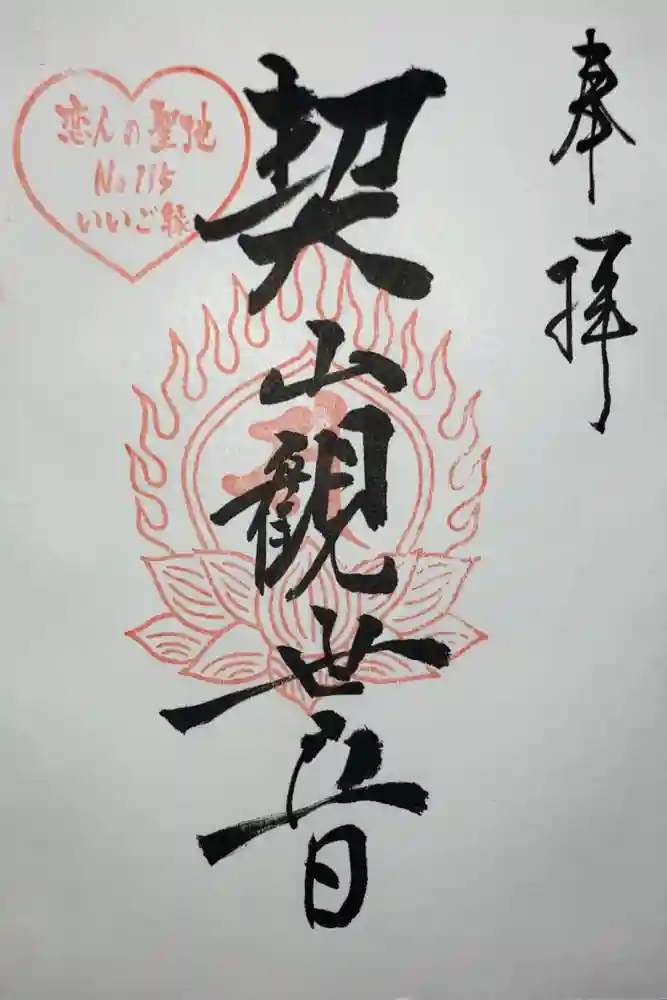 奉拝
契山観世音
恋人の聖地
No115
いいご縁